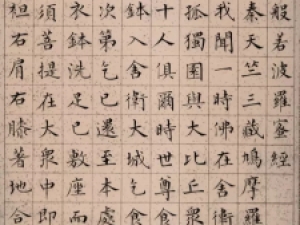 般若波羅蜜經
秦天竺三藏鳩摩羅
我聞一時佛在舍衛
孤獨園與大比丘眾
十人俱爾時世尊食
鉢入舍衛大城乞食
次第乞已還至本處
衣鉢洗足已敷座而
須菩提在大眾中即
袒右肩右膝著地合